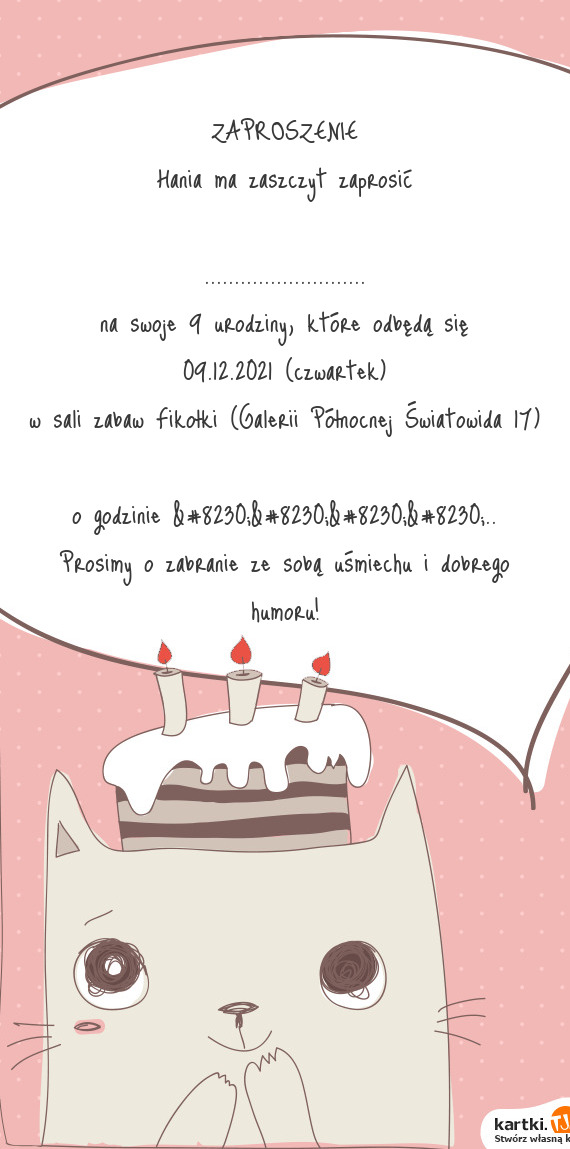 ZAPROSZENIE
Hania ma zaszczyt zaprosić
...........................
na swoje 9 urodziny, które odbędą się
09.12.2021 (czwartek)
w sali zabaw Fikołki (Galerii Północnej Światowida 17)
o godzinie &#8230;&#8230;&#8230;&#8230;..
Prosimy o zabranie ze sobą uśmiechu i dobrego
humoru!
kartki.TJ
Stwórz własną k